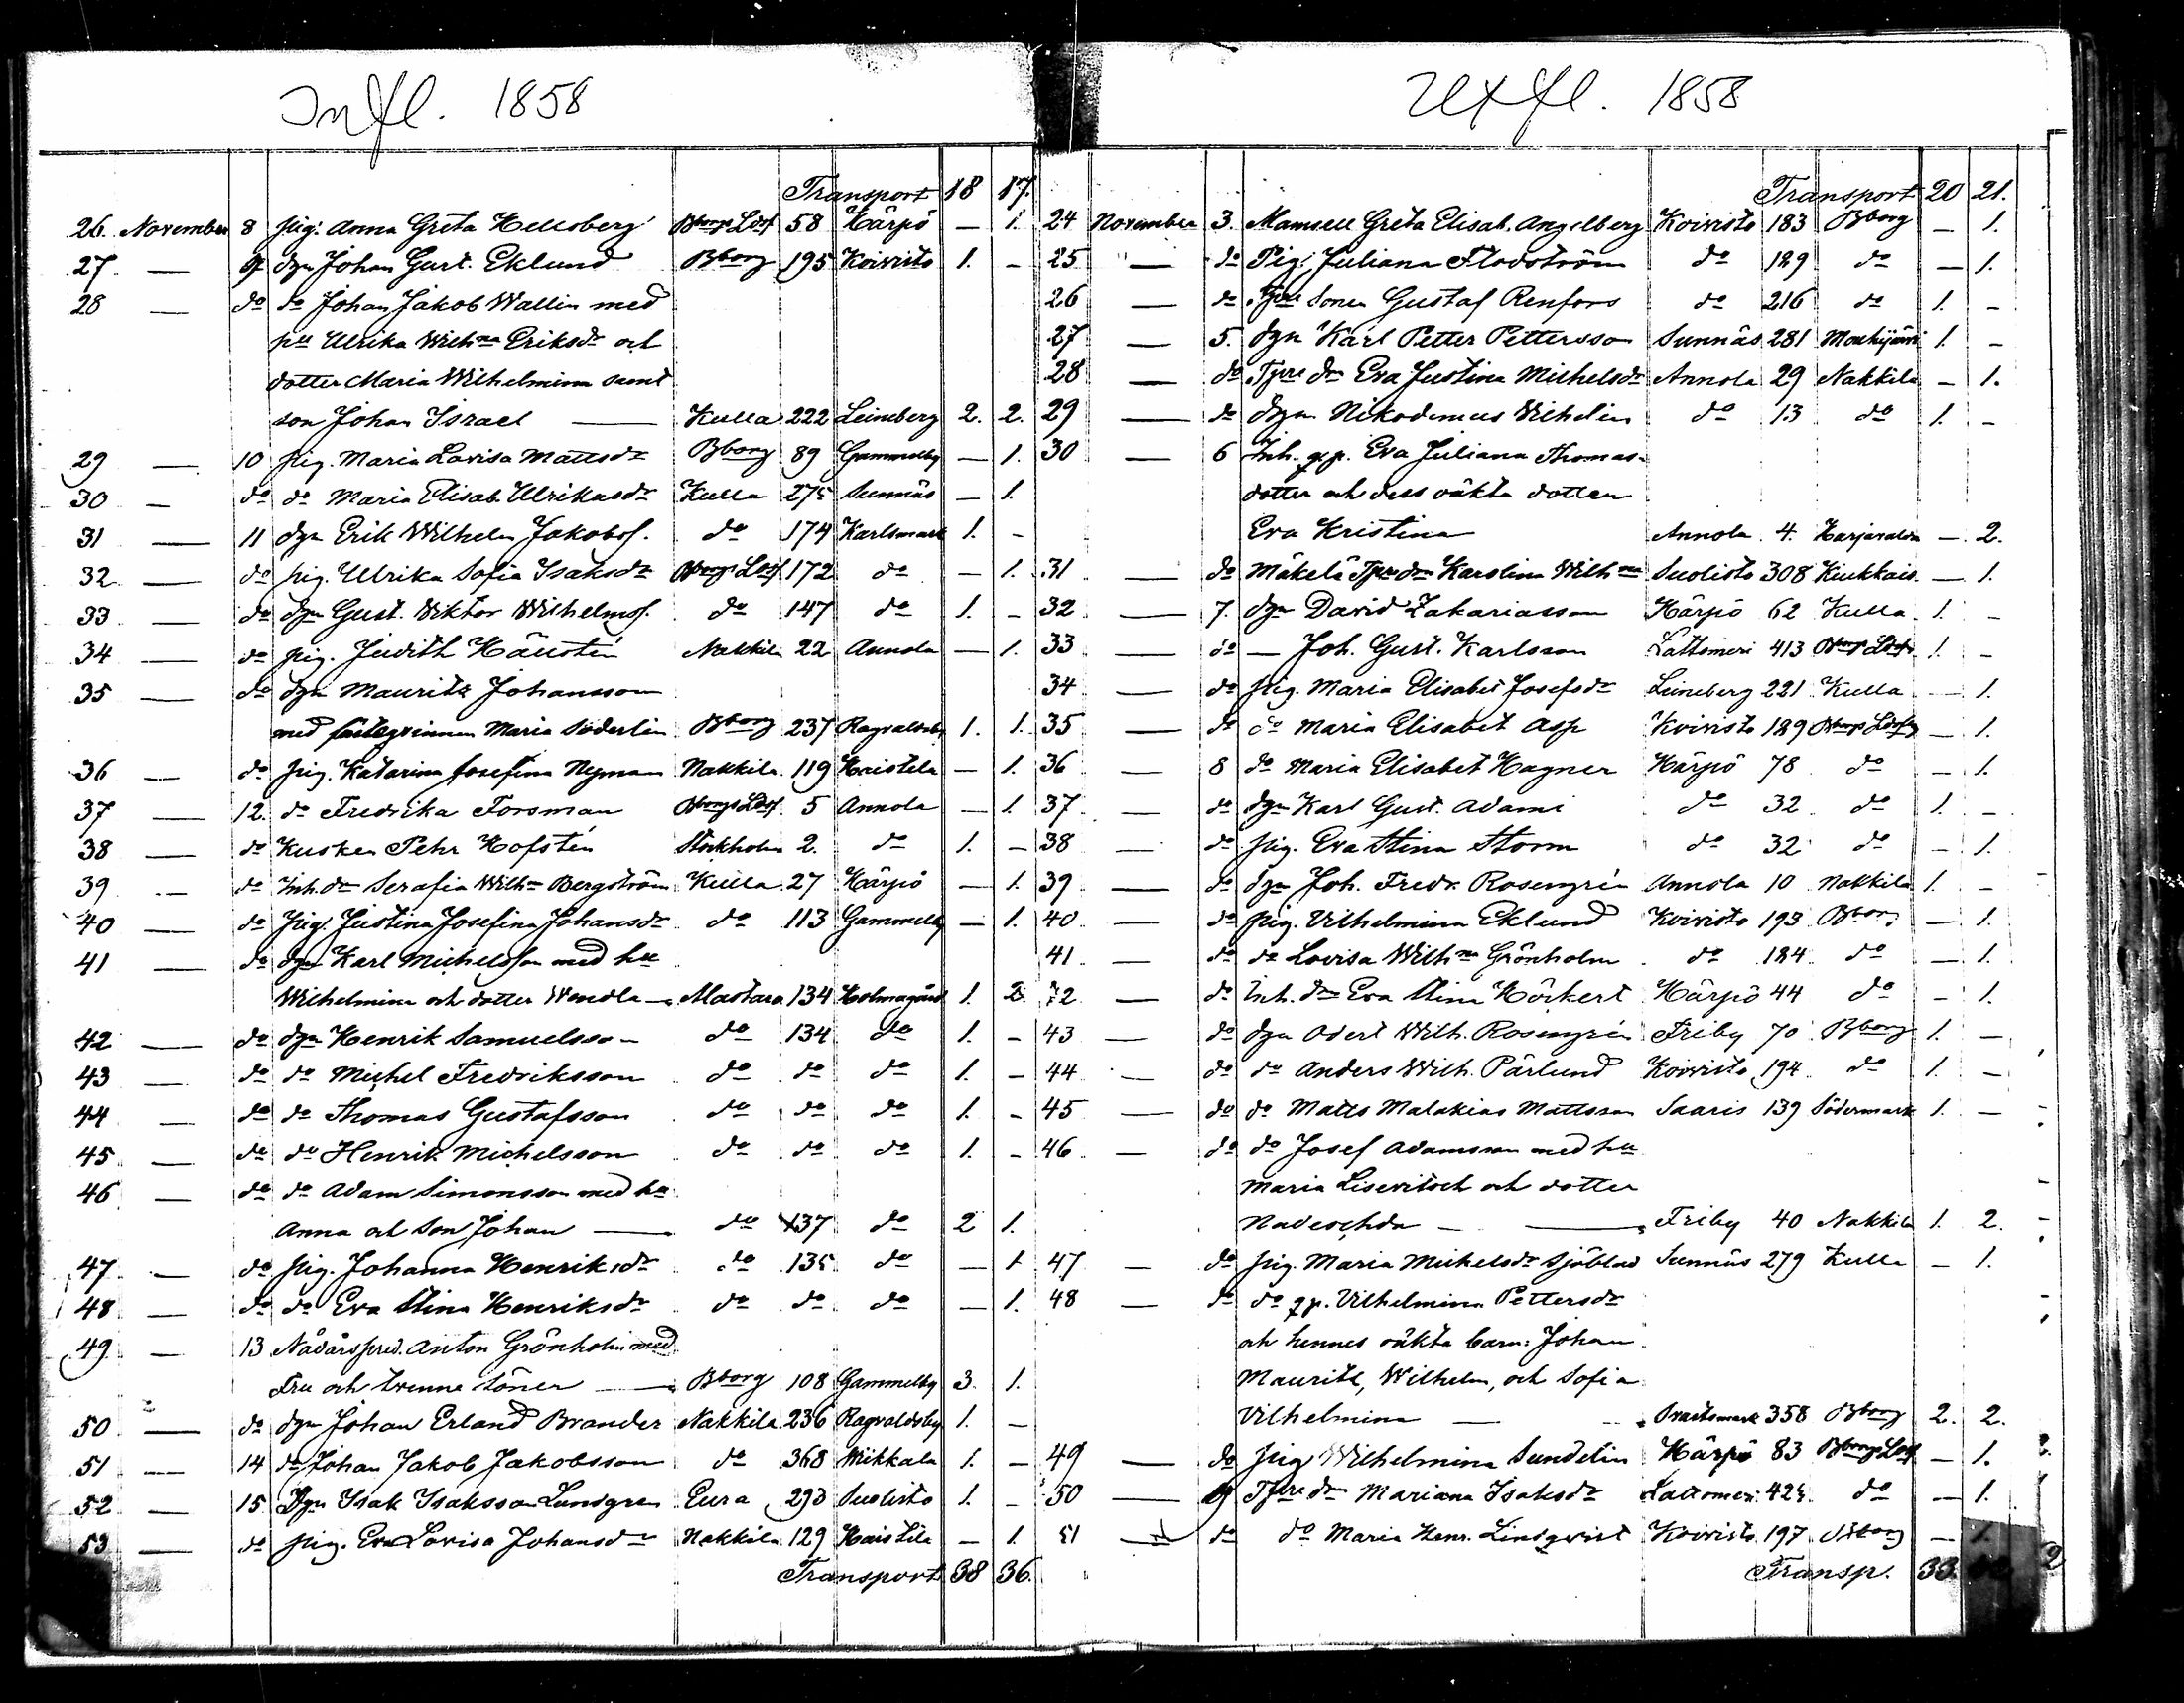 Infl. 1858
Transport 18 17.
26. November 8 pig. Anna Greta Hellsberg Bborgs Ldsf 58 Härpö — 1.
27 — 9 dgn Johan Gust. Eklund Bborg 195 Koivisto 1. -
28 — do do Johan Jakob Wallin med
hu Ulrika Wilhna Eriksdr och
dotter Maria Wilhelmina samt
son Johan Israel — Kulla 222 Leineberg 2. 2.
29 — 10 pig. Maria Lovisa Mattsdr Bborg 89 Gammelby — 1.
30 — do do Maria Elisab. Ulrikasdr Kulla 275 Sunnäs — 1.
31 — 11 dgn Erik Wilhelm Jakobsf. do 174 Karlsmark 1. -
32 — do pig. Ulrika Sofia Isaksdr Bborgs Ldsf 172 do — 1.
33 — do dgn Gust. Wiktor Wilhelmsf. do 147 do 1. -
34 — do pig. Judith Hausten Nakkila 22 Annola — 1.
35 — do dgn Maurits Johansson
med fästeqvinnan Maria Söderlin Bborg 237 Ragvaldsby 1. 1.
36 — do pig. Katarina Josefina Nyman Nakkila 119 Haistila — 1.
37 — 12. do Fredrika Forsman Bborgs Ldsf. 5 Annola — 1.
38 — do Kusken Pehr Hofstén Stockholm 2. do 1. -
39 — do Inh. dr Serafia Wilhna Bergström Kulla 27 Härpö — 1.
40 — do Pig. Justina Josefina Johansdr do 113 Gammelby — 1.
41 — do dgn Karl Michelsson med hu
Wilhelmina och dotter Wendla — Mouhijärvi 134 Holmagård 1. 2
42 — do dgn Henrik Samuelsson do 134 do 1. -
43 — do do Michel Fredriksson do do do 1. -
44 — do do Thomas Gustafsson do do do 1. -
45 — do do Henrik Michelsson do do do 1. -
46 — do do Adam Simonsson med hu
Anna och son Johan — do 137 do 2 1.
47 — do pig. Johanna Henriksdr do 135 do — 1
48 — do do Eva Stina Henriksdr do do do — 1.
49 — 13 Nådårspred. Anton Grönholm med
Fru och tvenne söner — Bborg 108 Gammelby 3. 1.
50 — do dgn Johan Erland Brander Nakkila 236 Ragvaldsby 1. -
51 — 14 do Johan Jakob Jakobsson do 368 Wiikkala 1. -
52 — 15 Dgn Isak Isaksson Lundgren Eura 293 Suolisto 1. -
53 — do pig. Eva Lovisa Johansdr Nakkila 129 Haistila — 1.
Transport 38 36.
Utfl. 1858
Transport 20 21.
24 November 3. Mamsell Greta Elisab. Angelberg Koivisto 183 Bborg — 1.
25 — do Pig. Juliana Flodström do 189 do — 1.
26 — do Tjre sonen Gustaf Renfors do 216 do 1. -
27 — 5. dgn Karl Petter Pettersson Sunnäs 281 Mouhijärvi 1. -
28 — do Tjre dr Eva Justina Michelsdr Annola 29 Nakkila — 1.
29 — do dgn Nikodemus Wilhelm do 13 do 1. -
30 — 6 Inh. qp. Eva Juliana Thomas-
dotter och dess oäkta dotter
Eva Kristina Annola 4. Harjavalda — 2.
31 — do Mäkelä Tjre dr Karolina Wilhna Suolisto 308 Kiukkais — 1.
32 — 7. dgn David Zakariasson Härpö 62 Kulla 1. -
33 — do — Joh. Gust. Karlsson Lattomeri 413 Bborgs Ldsf. 1. -
34 — do pig. Maria Elisabet Josefsdr Leineberg 221 Kulla — 1.
35 — do do Maria Elisabet Asp Koivisto 189 Bborgs Ldsfg — 1.
36 — 8 do Maria Elisabet Hagner Härpö 78 do — 1.
37 — do dgn Karl Gust. Adami do 32 do 1. -
38 — do pig. Eva Stina Storm do 32 do — 1.
39 — do dgn Joh. Fredr. Rosengrén Annola 10 Nakkila 1. -
40 — do pig. Vilhelmina Eklund Koivisto 193 Bborg — 1.
41 — do do Lovisa Wilhna Grönholm do 184 do — 1.
42 — do Inh. dr Eva Stina Hörkert Härpö 44 do — 1.
43 — do dgn Odert Wilh. Rosengrén Friby 70 Bborg 1. —
44 — do do Anders Wilh. Pärlund Koivisto 194 do 1. —
45 — do do Matts Malakias Mattsson Saaris 139 Södermark 1. —
46 — do do Josef Adamsson med hu
Maria Lisevitsch och dotter
Nadeschda — Friby 40 Nakkila 1. 2.
47 — do pig. Maria Michelsdr Sjöblad Sunnäs 279 Kulla — 1.
48 — do do qp. Vilhelmina Pettersdr
och hennes oäkta barn: Johan
Maurits, Wilhelm, och Sofia
Vilhelmina — Svartsmark 358 Bborg 2. 2.
49 — do pig Wilhelmina Sundelin Härpö 83 Bborgs Ldsf — 1.
50 — 9 Tjre dr Mariana Isaksdr Lattomeri 425 do — 1.
51 — do do Maria Henr. Lindqvist Koivisto 197 Bborg — 1.
Transp. 33.